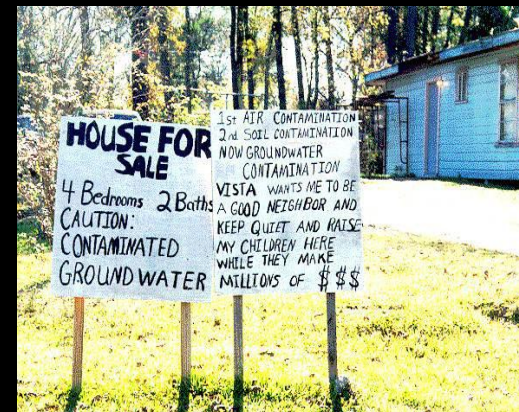 HOUSE FOR
SALE
4 Bedrooms 2 Baths
CAUTION:
CONTAMINATED
GROUND WATER
1st AIR CONTAMINATION
2nd SOIL CONTAMINATION
NOW GROUNDWATER
CONTAMINATION
VISTA WANTS ME TO BE
A GOOD NEIGHBOR AND
KEEP QUIET AND RAISE
MY CHILDREN HERE
WHILE THEY MAKE
MILLIONS OF $$$